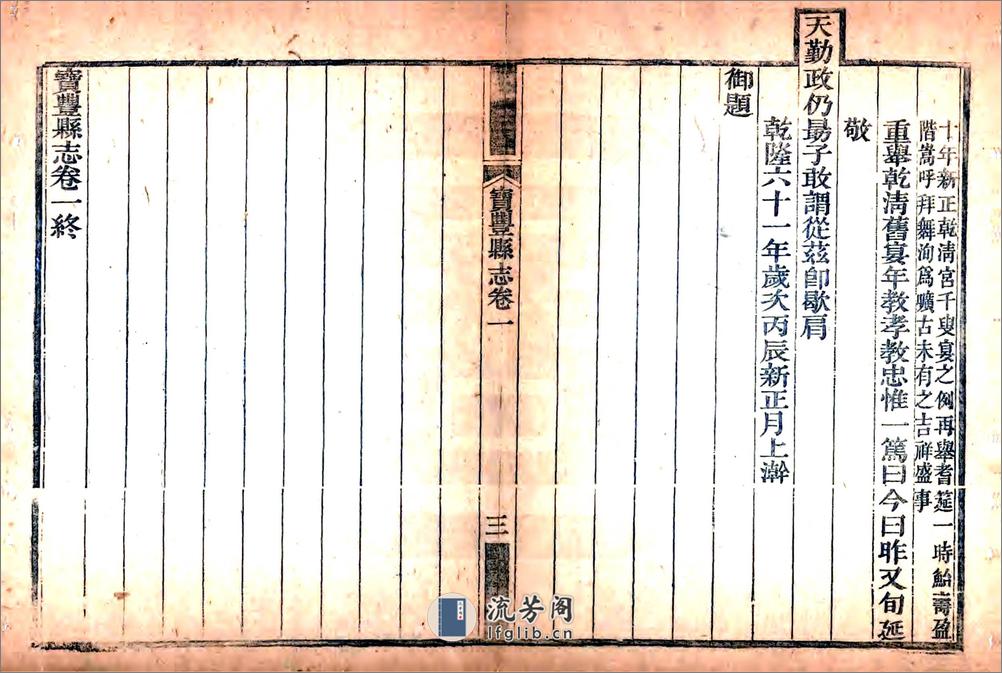 十年新正乾清宮千叟宴之例再舉耆筵一時鮐壽盈
階嵩呼拜舞洵爲曠古未有之吉祥盛事
重舉乾清舊宴年教孝教忠惟一篤曰今曰昨又旬延
敬
天勤政仍勗子敢謂從兹卽歇肩
乾隆六十一年歲次丙辰新正月上澣
御題
寶豐縣志卷一
三
寶豐縣志卷一終
流芳阁
lfglib.cn